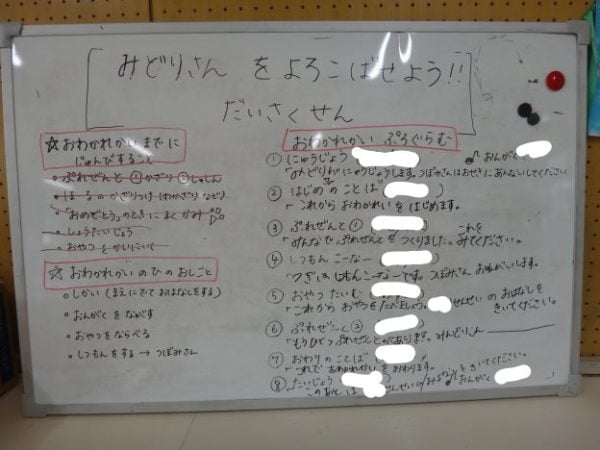 みどりさん をよろこばせよう!!
だいさくせん
☆おわかれかいまでに
じゅんびすること
ぷれぜんと① かざり ②
はーるのかざりつけ
「おめでとう」のときにまく かみ
しょうたいじょう
おやつをかいにいく
☆おわかれかいのひのおしごと
しかい (まえにでておはなしをする)
おんがくをながす
おやつをならべる
しつもんをする → つぼみさん
おわかれかい ぷろぐらむ
① にゅうじょう ♪おんがく
「みどりぐみがにゅうじょうします。つぼみさんはおせきにあんないしてください
② はじめのことば ( )
「これから おわかれかいをはじめます。
③ ぷれぜんと① ( ) これを
「みんなで ぷれぜんとをつくりました。みてください。
④ しつもん こーなー ( )
「つぎは しつもんこーなーです。つぼみさん おねがいします。
⑤ おやつ たいむ ( )
「これから おやつをたべましょう。 せんせいのおはなしを
きいてください。
⑥ ぷれぜんと② ( )
「もうひとつ ぷれぜんとがあります。
⑦ おわりのことば ( )
「これで おわかれかいをおわります。
⑧ たいじょう ♪おんがく
「このあとは せんせいのおはなしをきいてください。